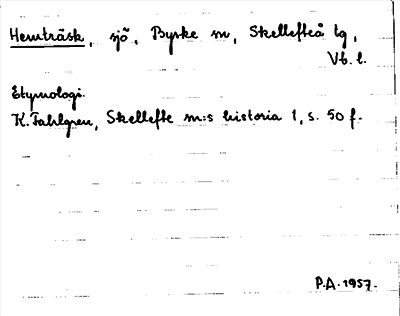 Hemträsk, sjö, Byske sn, Skellefteå tg,
Vb. l.
Etymologi.
K. Fahlgren, Skellefte sn:s historia 1, s. 50 f.
P.A. 1957.